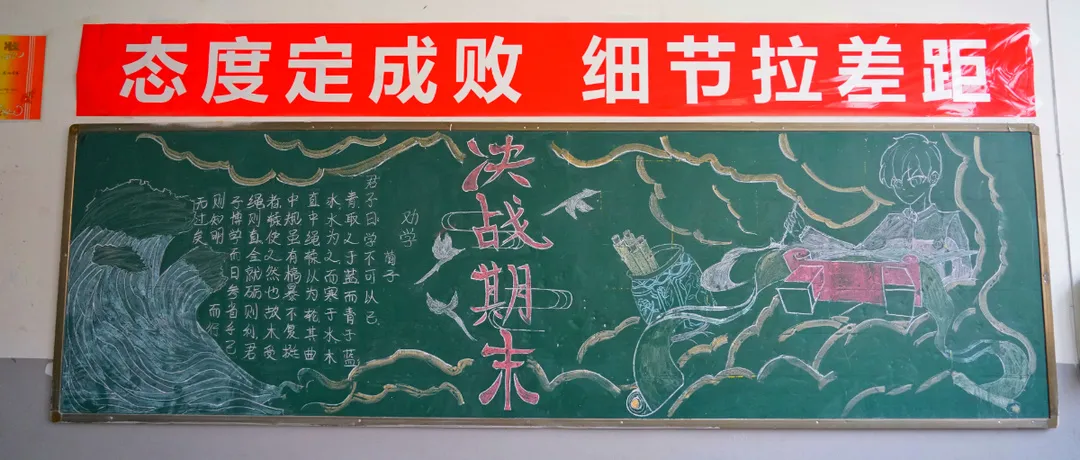 态度定成败 细节拉差距
决战期末
劝学
荀子
君子曰学不可以已
青取之于蓝而青于蓝
冰水为之而寒于水木
直中绳輮以为轮其曲
中规虽有槁暴不复挺
者輮使之然也故木受
绳则直金就砺则利君
子博学而日参省乎己
则知明 而行
无过矣